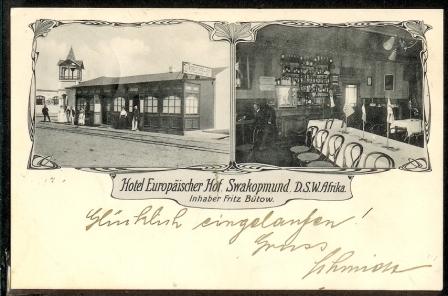 Hotel Europäischer Hof. Swakopmund. D.S.W. Afrika.
Inhaber Fritz Bütow.
Glücklich eingelaufen!
Gruss
Schmidt